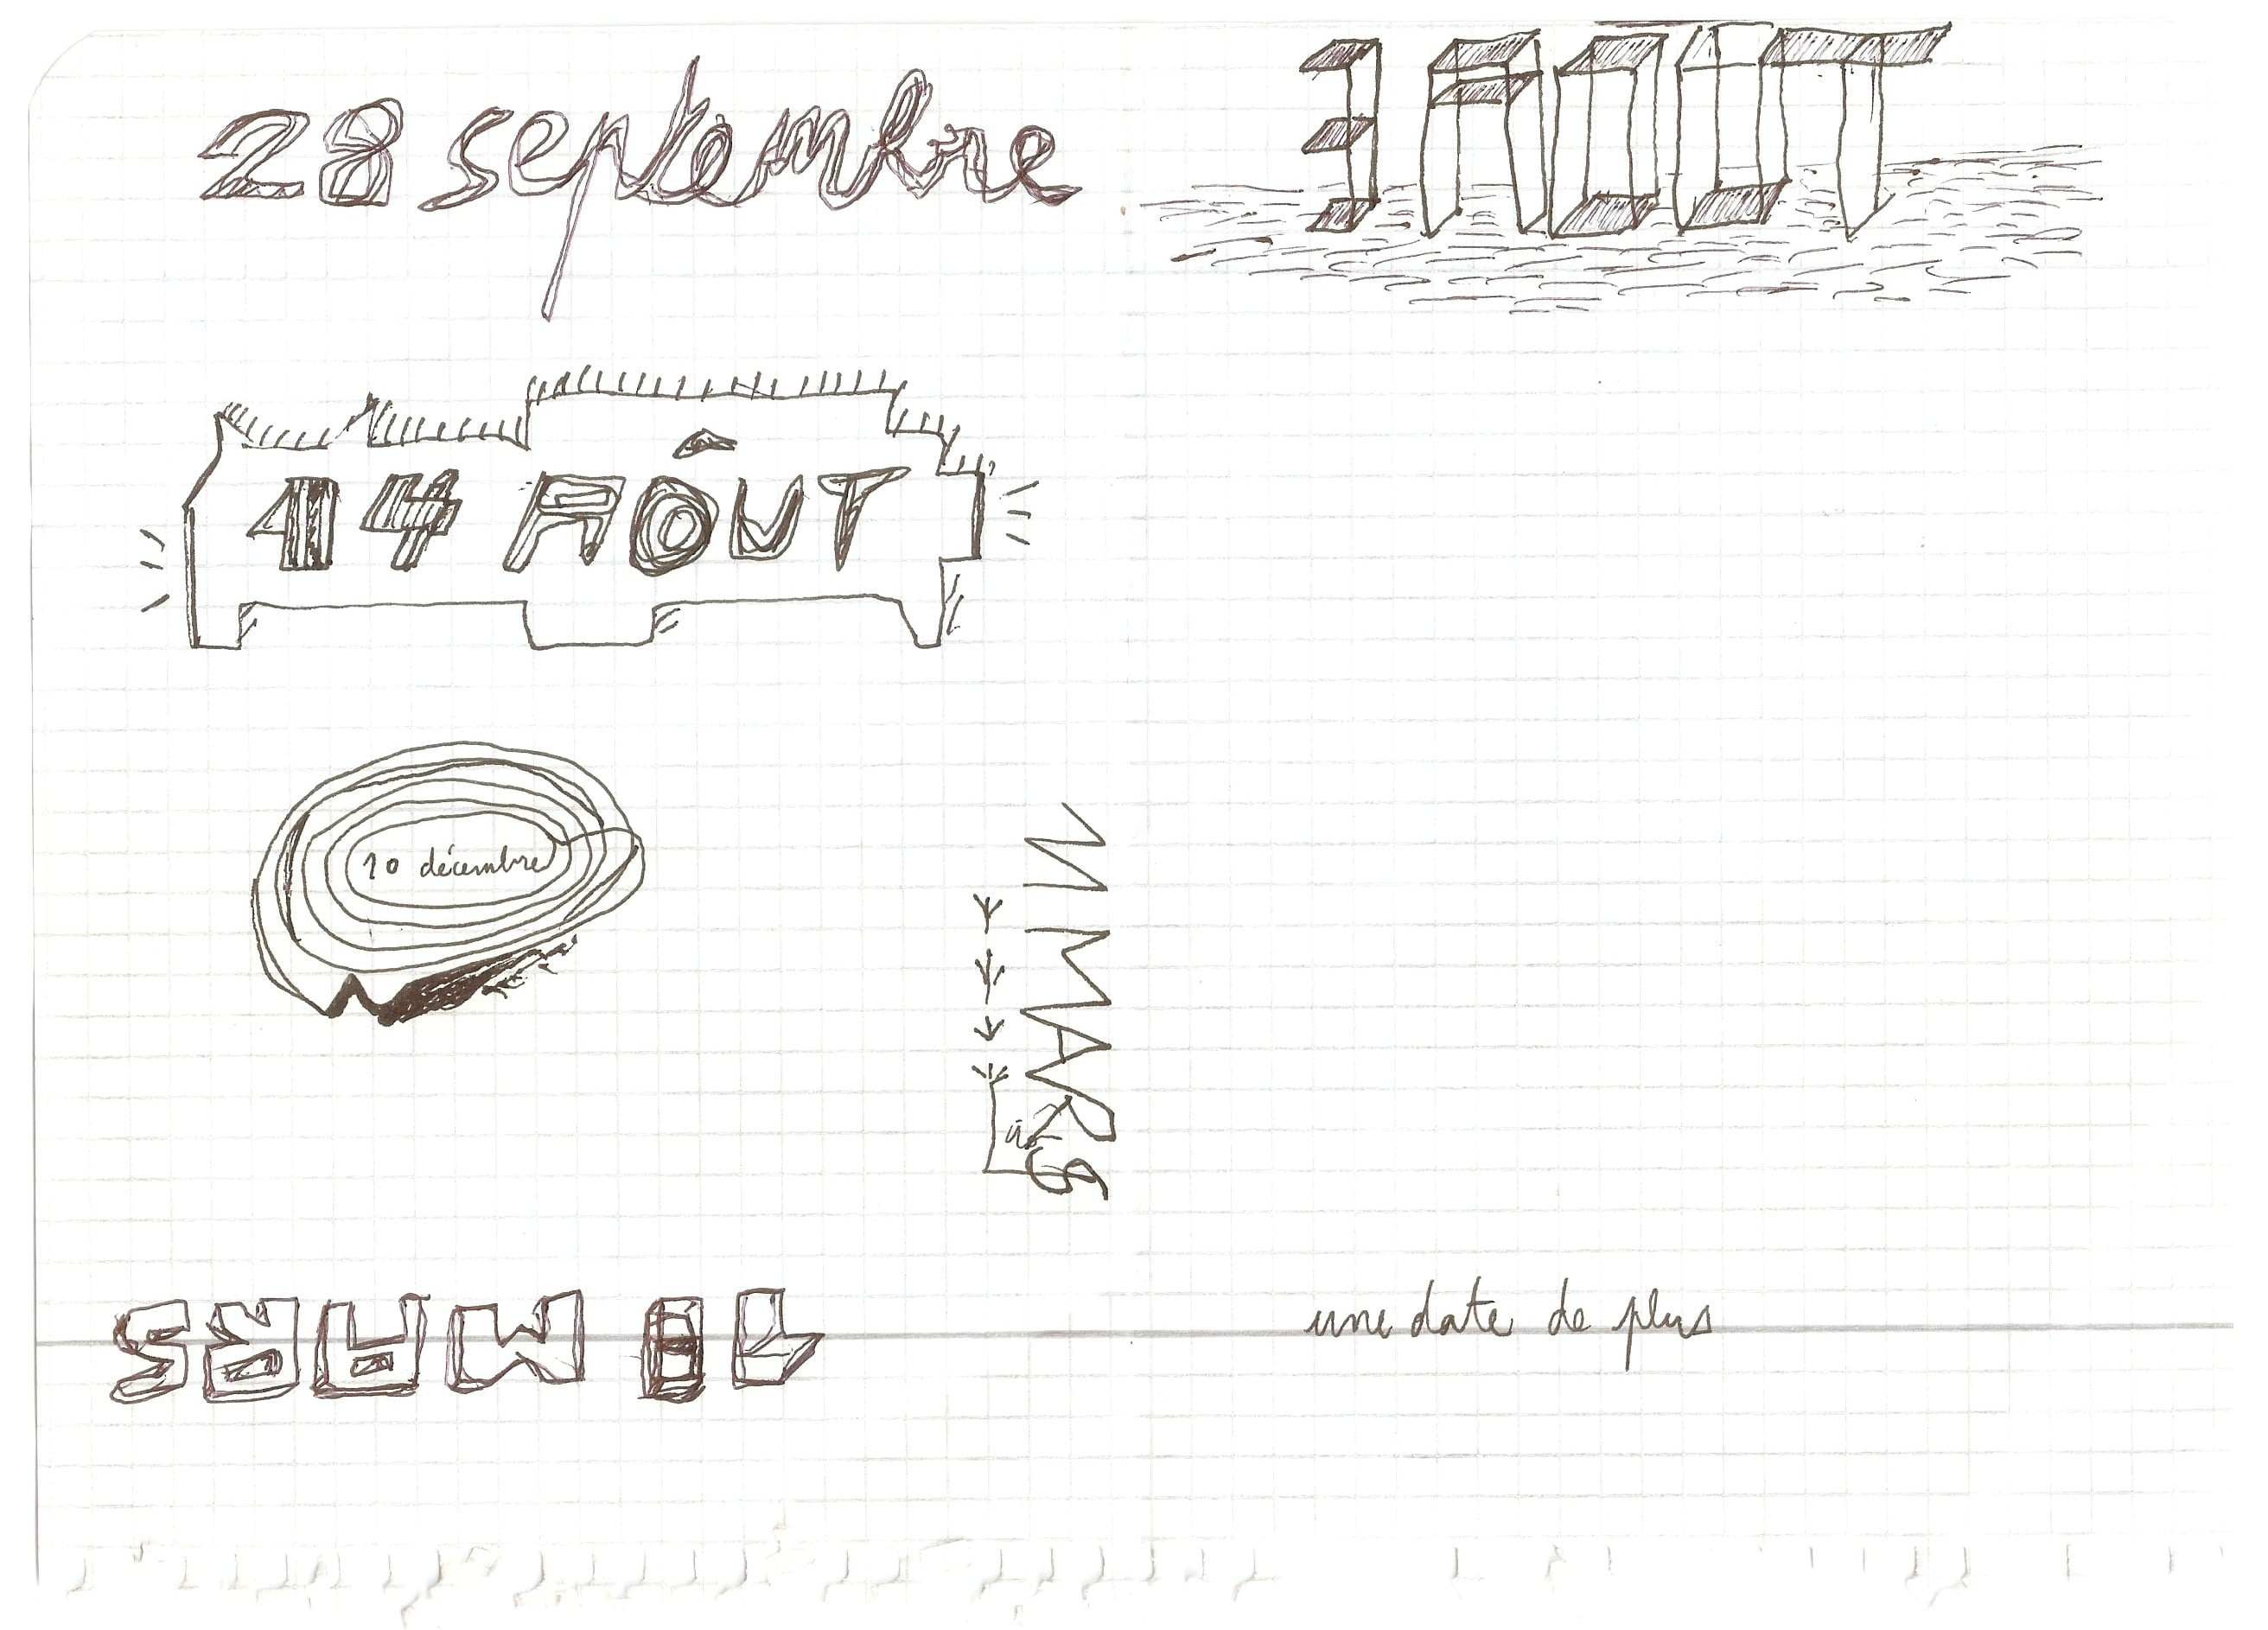 28 septembre
3 AOUT
14 AÔUT
10 décembre
11 MARS
18 MARS
une date de plus